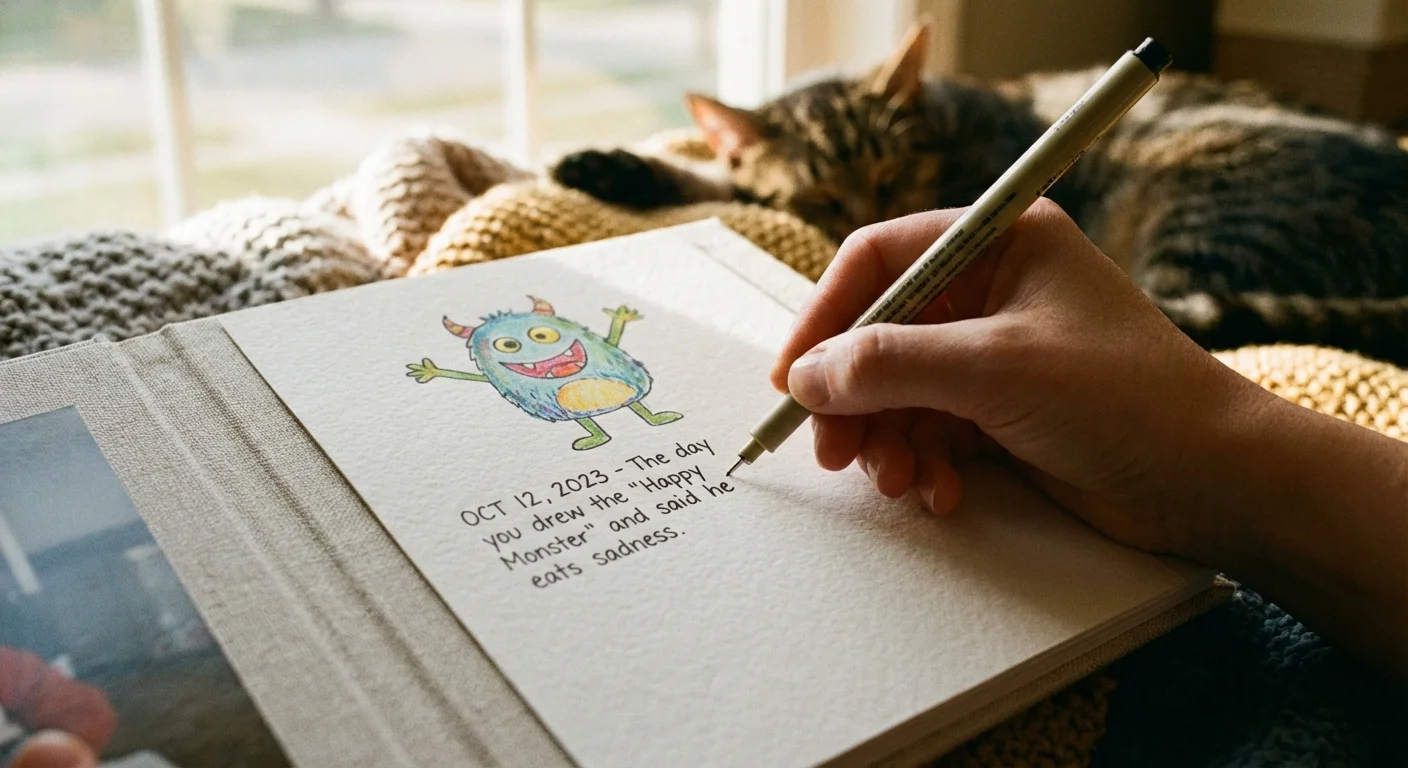 OCT 12, 2023 - The day
you drew the "Happy
Monster" and said he
eats sadness.